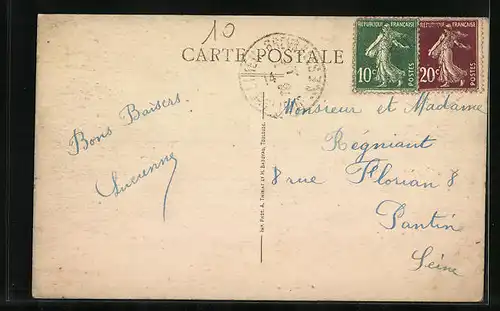 10
CARTE POSTALE
RÉPUBLIQUE FRANÇAISE
10c
POSTES
RÉPUBLIQUE FRANÇAISE
20c
POSTES
Bons Baisers
Lucienne
Monsieur et Madame
Régniant
8 rue Florian 8
Pantin
Seine